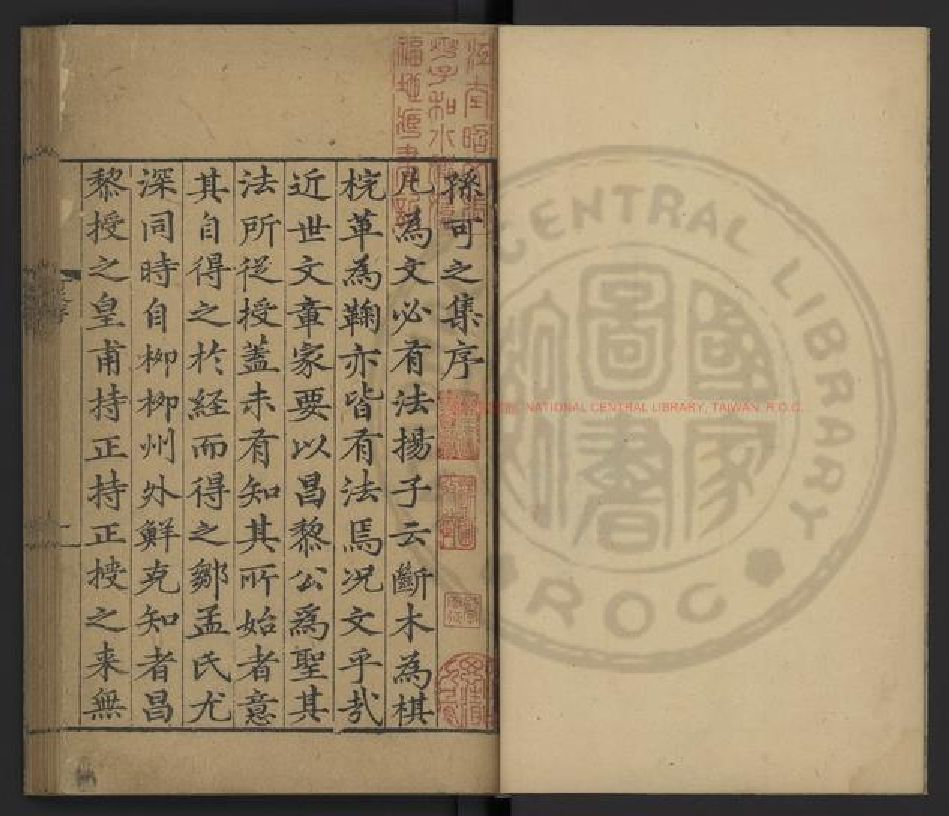 孫可之集序
凡為文必有法揚子云斷木為棋
梡革為鞠亦皆有法焉况文乎哉
近世文章家要以昌黎公爲聖其
法所從授蓋未有知其所始者意
其自得之於經而得之鄒孟氏尤
深同時自栁栁州外鮮克知者昌
黎授之皇甫持正持正授之来無
國家圖書
CENTRAL LIBRARY
ROC
NATIONAL CENTRAL LIBRARY, TAIWAN, R.O.C.